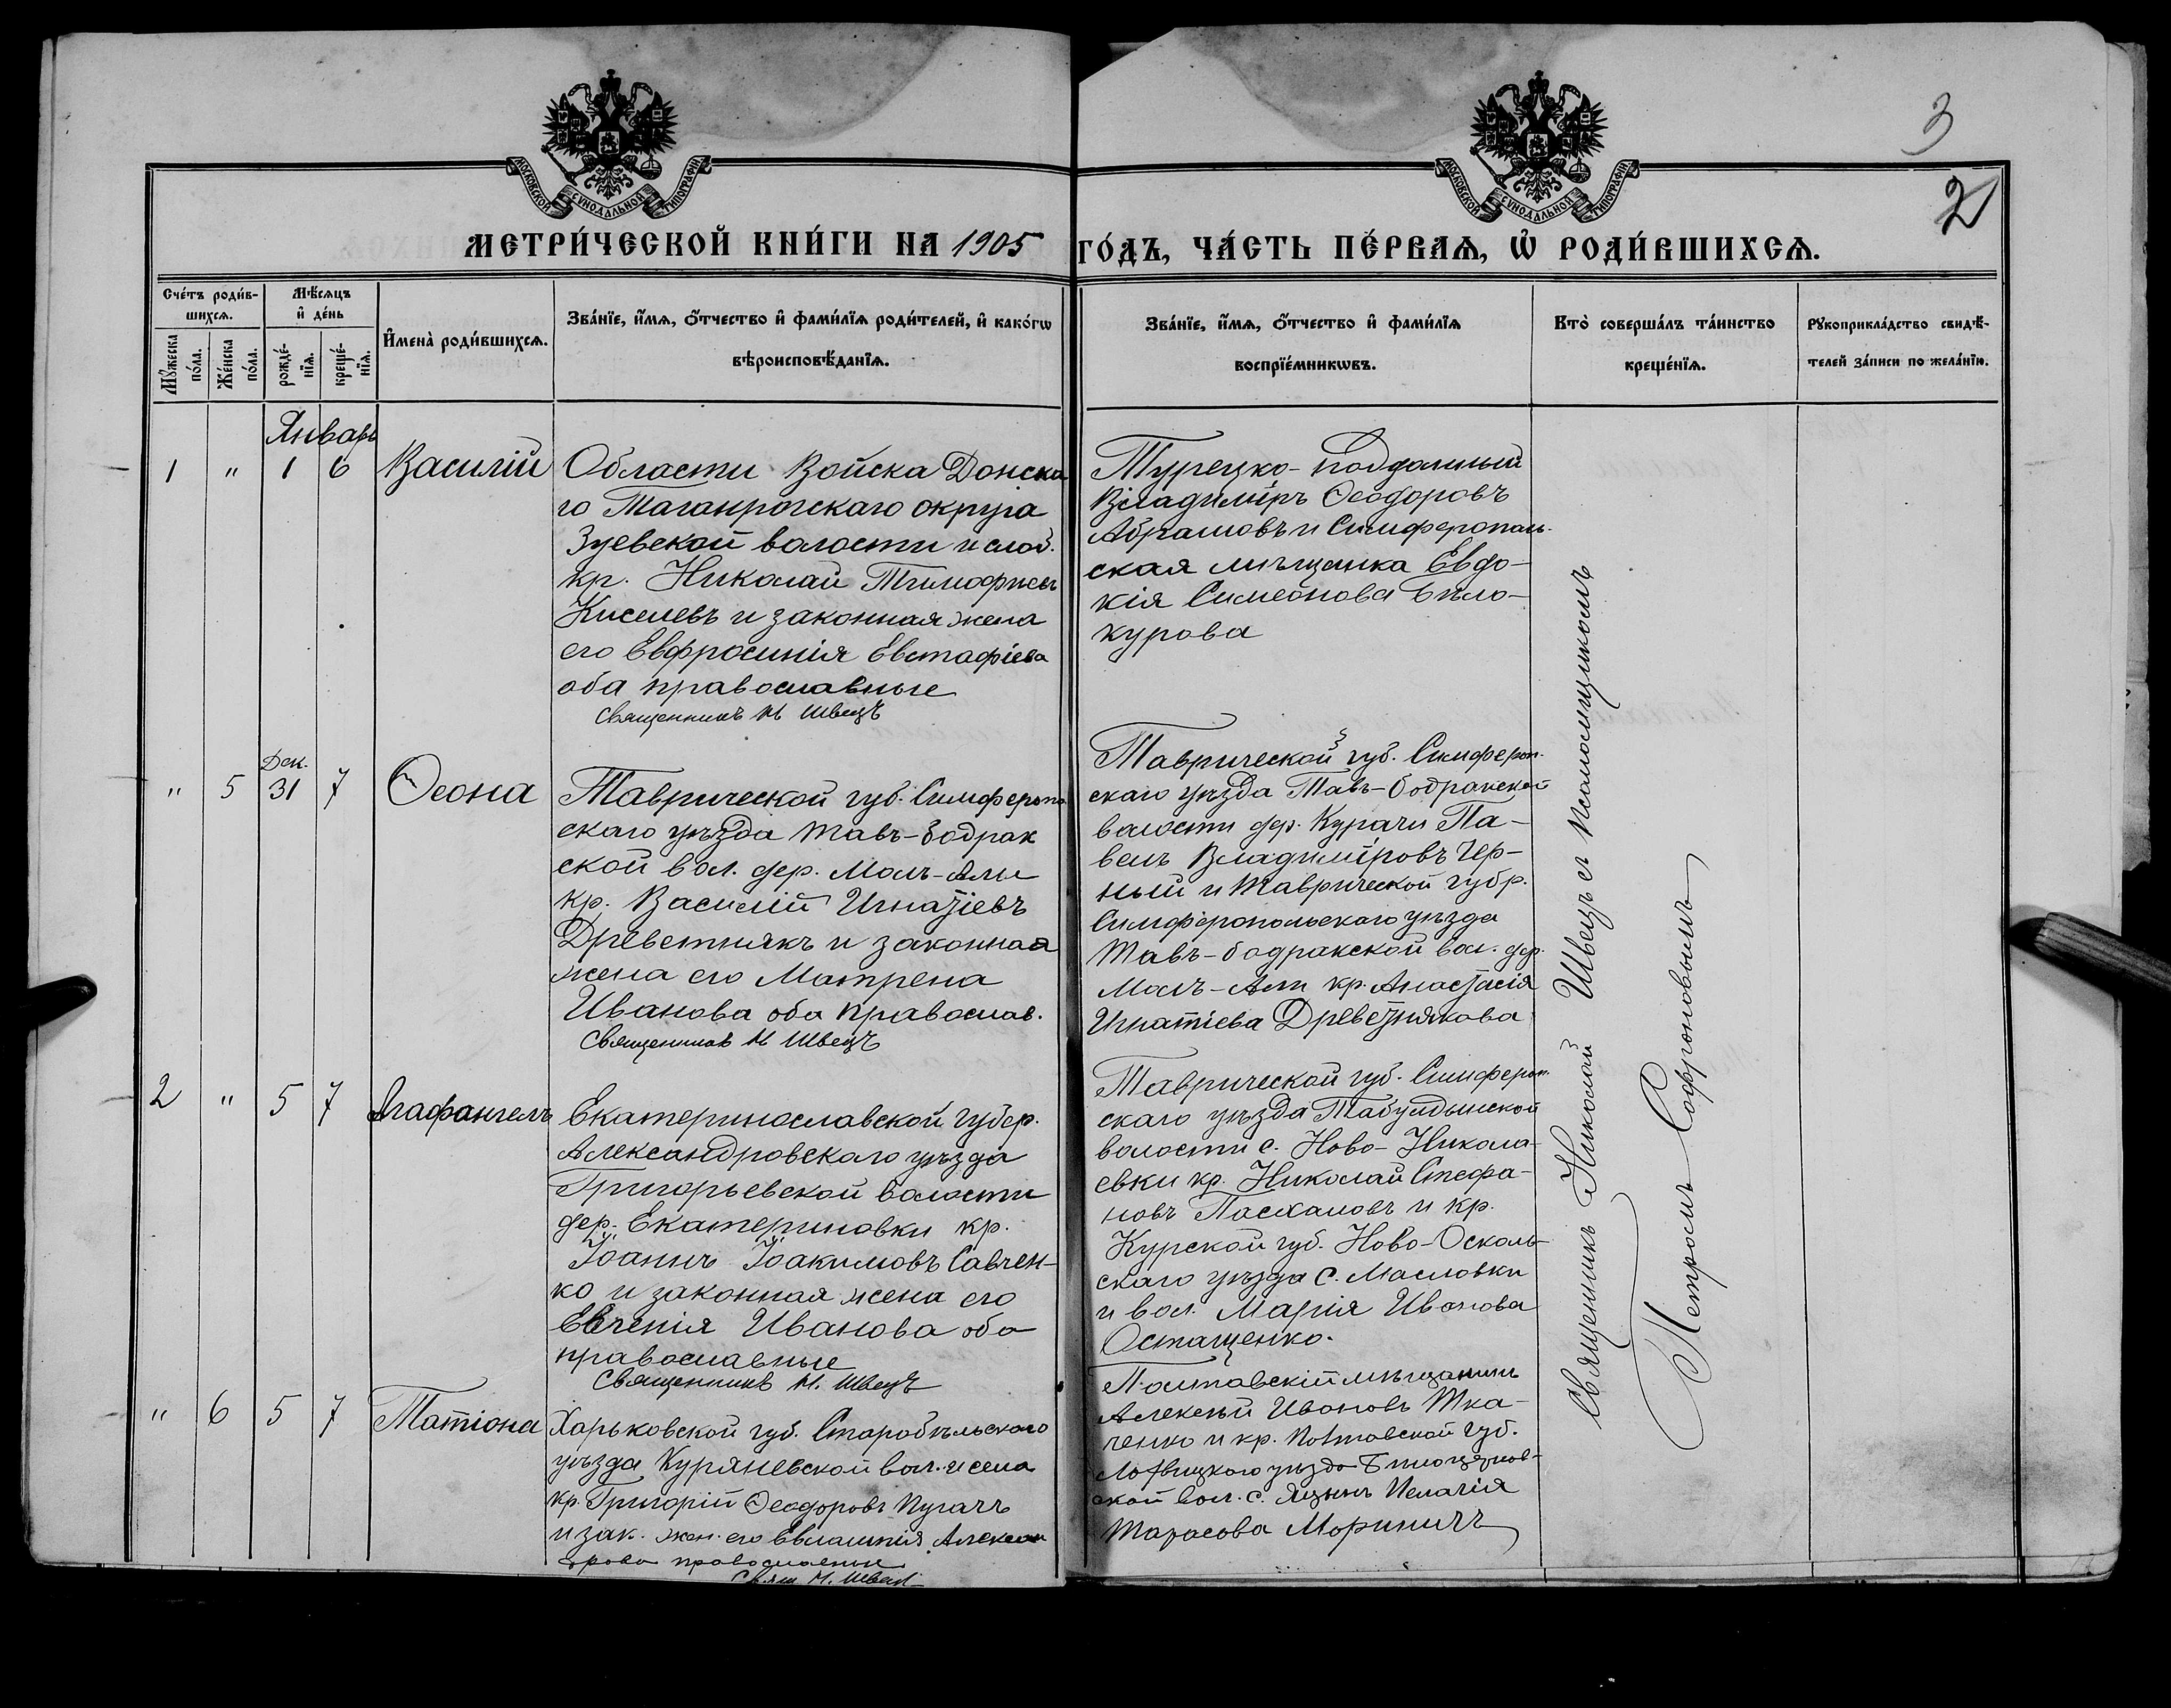 3
2
МОСКОВСКОЙ СѴНОДАЛЬНОЙ ТИПОГРАФІИ
МОСКОВСКОЙ СѴНОДАЛЬНОЙ ТИПОГРАФІИ
МЕТРИ́ЧЕСКОЙ КНИ́ГИ НА 1905 ГО́ДЪ, ЧА́СТЬ ПЕ́РВАѦ, Ѡ҆ РОДИ́ВШИХСѦ.
Сче́тъ роди́в-
шихсѧ.
Мꙋ́жеска по́ла.
Же́нска по́ла.
Мѣ́сѧцъ
и҆ де́нь
рожде́нїѧ.
креще́нїѧ.
И҆мена̀ роди́вшихсѧ.
Зва́нїе, и҆́мѧ, ѻ҆́тчество и҆ фами́лїѧ роди́телей, и҆ како́гѡ
вѣроисповѣ́данїѧ.
Зва́нїе, и҆́мѧ, ѻ҆́тчество и҆ фами́лїѧ
воспрїе́мникѡвъ.
Кто̀ соверша́лъ та́инство
креще́нїѧ.
Рꙋкоприкла́дство свидѣ́-
телей за́писи по жела́нїю.
Январь
1 " 1 6 Василій
Области Войска Донска
го Таганрогскаго округа
Зуевской волости и слоб.
кр. Николай Тимофѣевъ
Киселевъ и законная жена
его Евфросинія Евстафіева
оба православные
Священникъ Н Швецъ
Турецко-подданный
Владиміръ Ѳеодоровъ
Абрамовъ и Симферополь-
ская мѣщанка Евдо-
кія Симеонова Бѣло-
курова
Дек.
" 5 31 7 Ѳеона
Таврической губ. Симферопо
скаго уѣзда Тавъ-Бодрак
ской вол. дер. Молъ-Али
кр. Василій Игнатіевъ
Древетнякъ и законная
жена его Матрена
Иванова оба православ.
Священникъ Н Швецъ
Таврической губ. Симфероп.
скаго уѣзда Тавъ-бодракской
волости дер. Курачи Па-
велъ Владиміровъ Чер-
ный и Таврической губр.
Симферопольскаго уѣзда
Тавъ-бодракской вол. дер.
Молъ-Али кр. Анастасія
Игнатіева Древетнякова
2 " 5 7 Агафангелъ
Екатеринославской губер.
Александровскаго уѣзда
Григорьевской волости
дер. Екатериновки кр.
Іоаннъ Іоакимовъ Савчен-
ко и законная жена его
Евгенія Иванова оба
православные
Священникъ Н. Швецъ
Таврической губ. Симфероп.
скаго уѣзда Табулдынской
волости с. Ново-Никола-
евки кр. Николай Стефа-
новъ Пасхаловъ и кр.
Курской губ. Ново-Осколь-
скаго уѣзда с. Масловки
и вол. Марія Иванова
Остащенко.
" 6 5 7 Татіона
Харьковской губ. Старобѣльскаго
уѣзда Куряневской вол. и села
кр. Григорій Ѳеодоровъ Пугачъ
и зак. жен. его Евлампія Алексан
дрова православные
Свящ Н. Швецъ
Полтавскій мѣщанинъ
Алексѣй Ивановъ Тка-
ченко и кр. Полтавской губ.
Лохвицкаго уѣзда Бѣлоцерков-
ской вол. с. Яцынъ Пелагія
Тарасова Мориничъ
Священникъ Николай Швецъ съ псаломщикомъ
Петромъ Софроновымъ